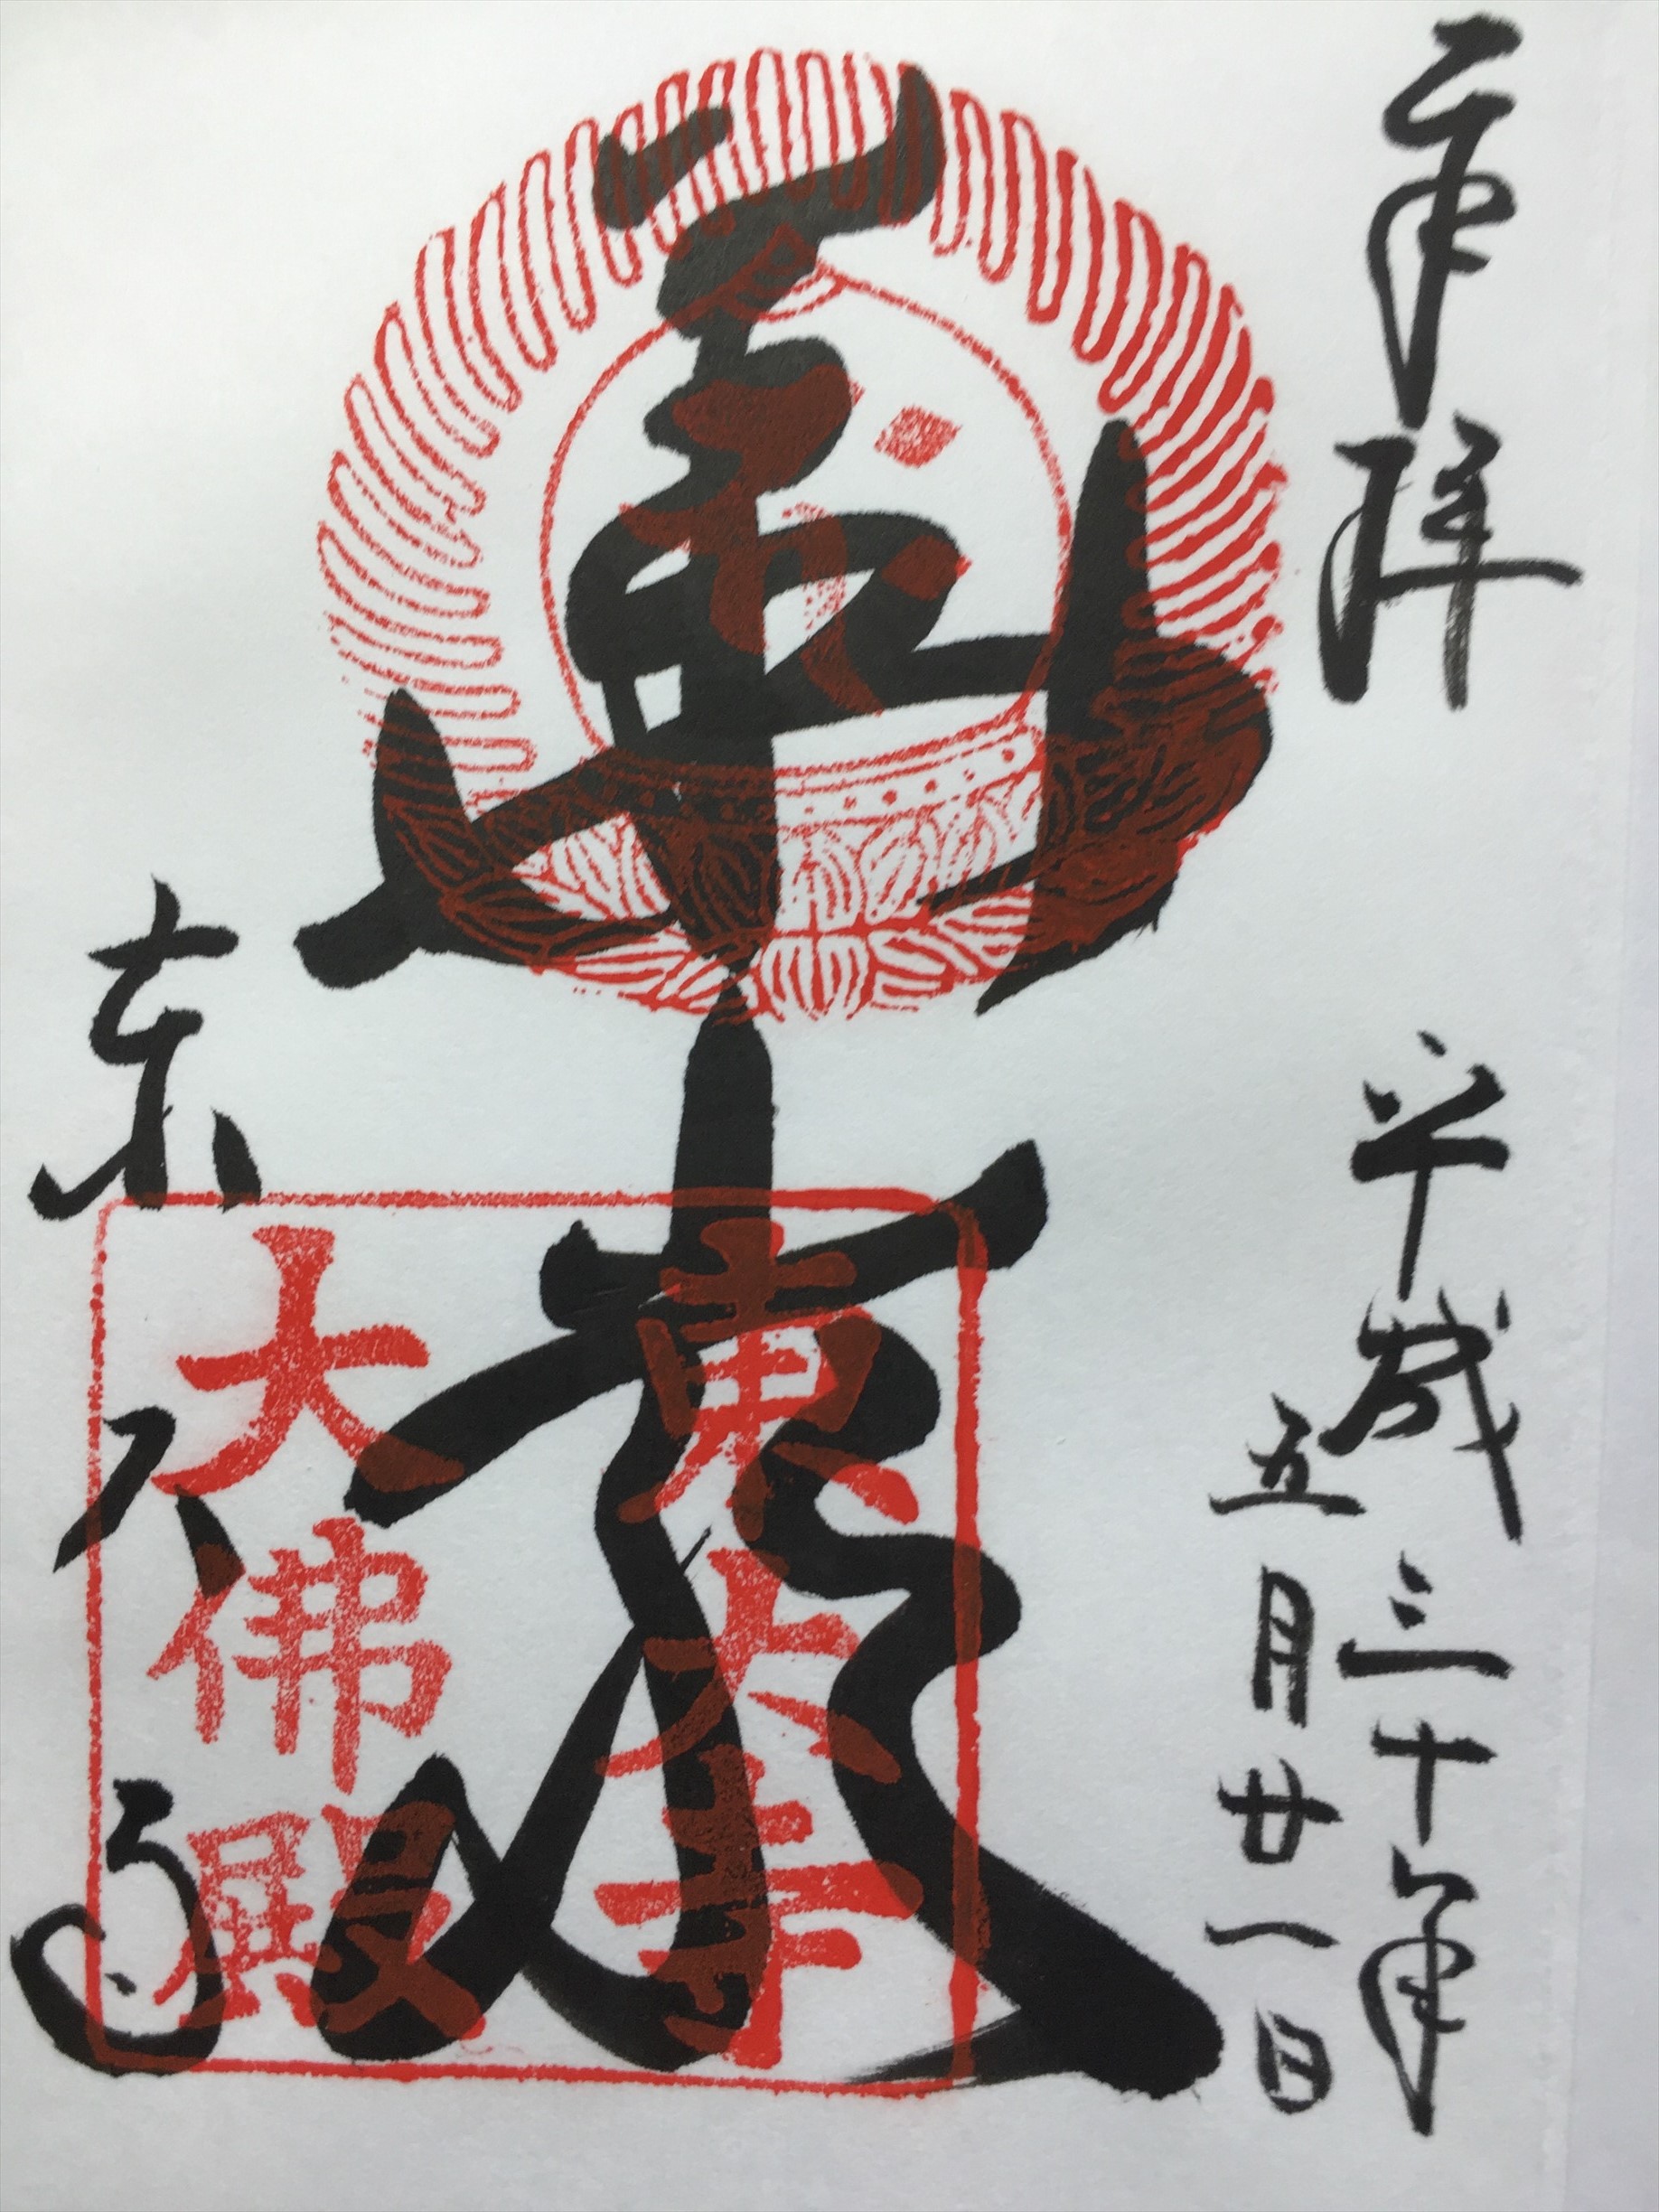 奉拝
平成三十年
五月廿一日
華厳
東大寺
東大寺
大佛殿